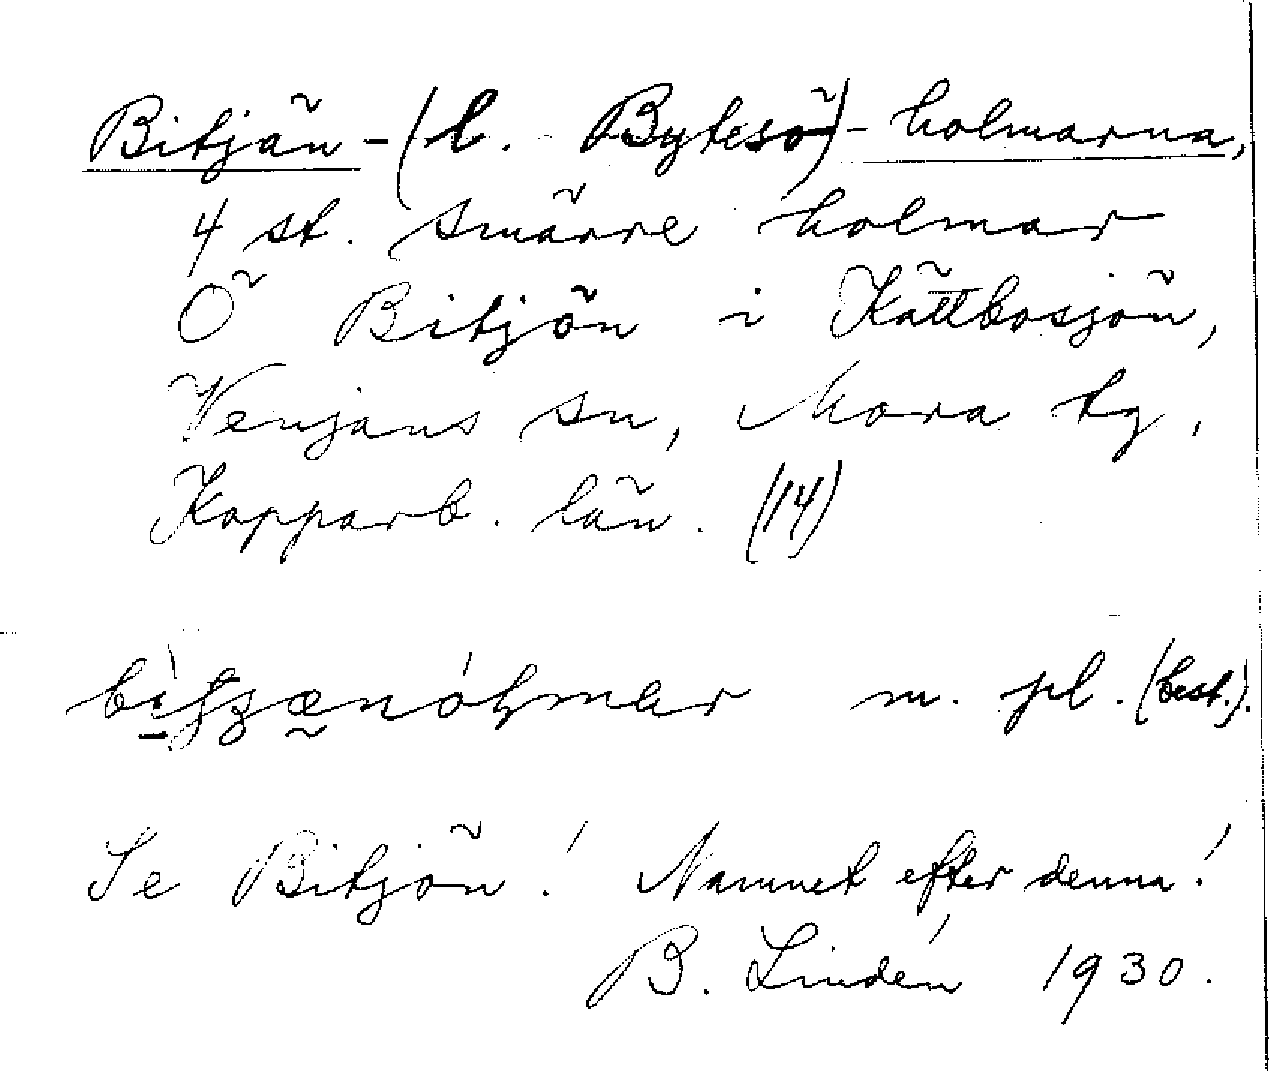 Bitjän-(l. Bytesö)-holmarna,
4 st. smärre holmar
Ö Bitjön i Kättbosjön,
Venjans sn, Mora tg,
Kopparb. län. (14)
m. pl. (best.).
Se Bitjön! Namnet efter denna!
B. Lindén 1930.